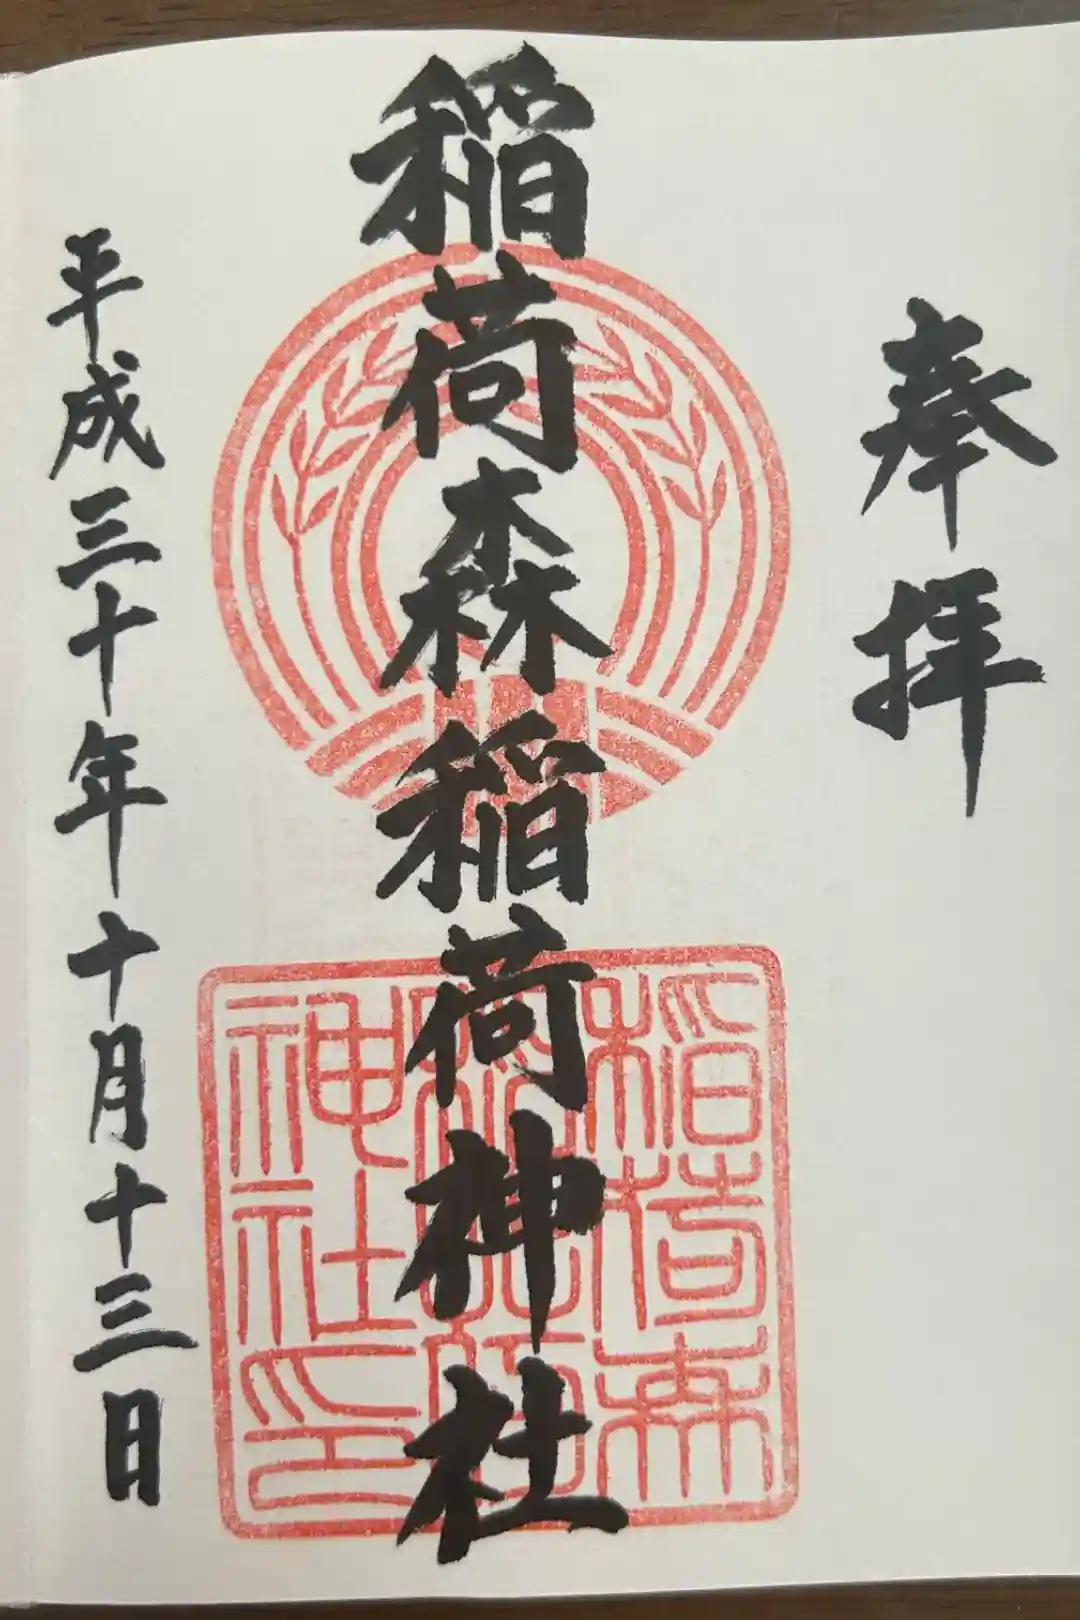 奉拝
稲荷森稲荷神社
平成三十年十月十三日
稲荷森
神社印